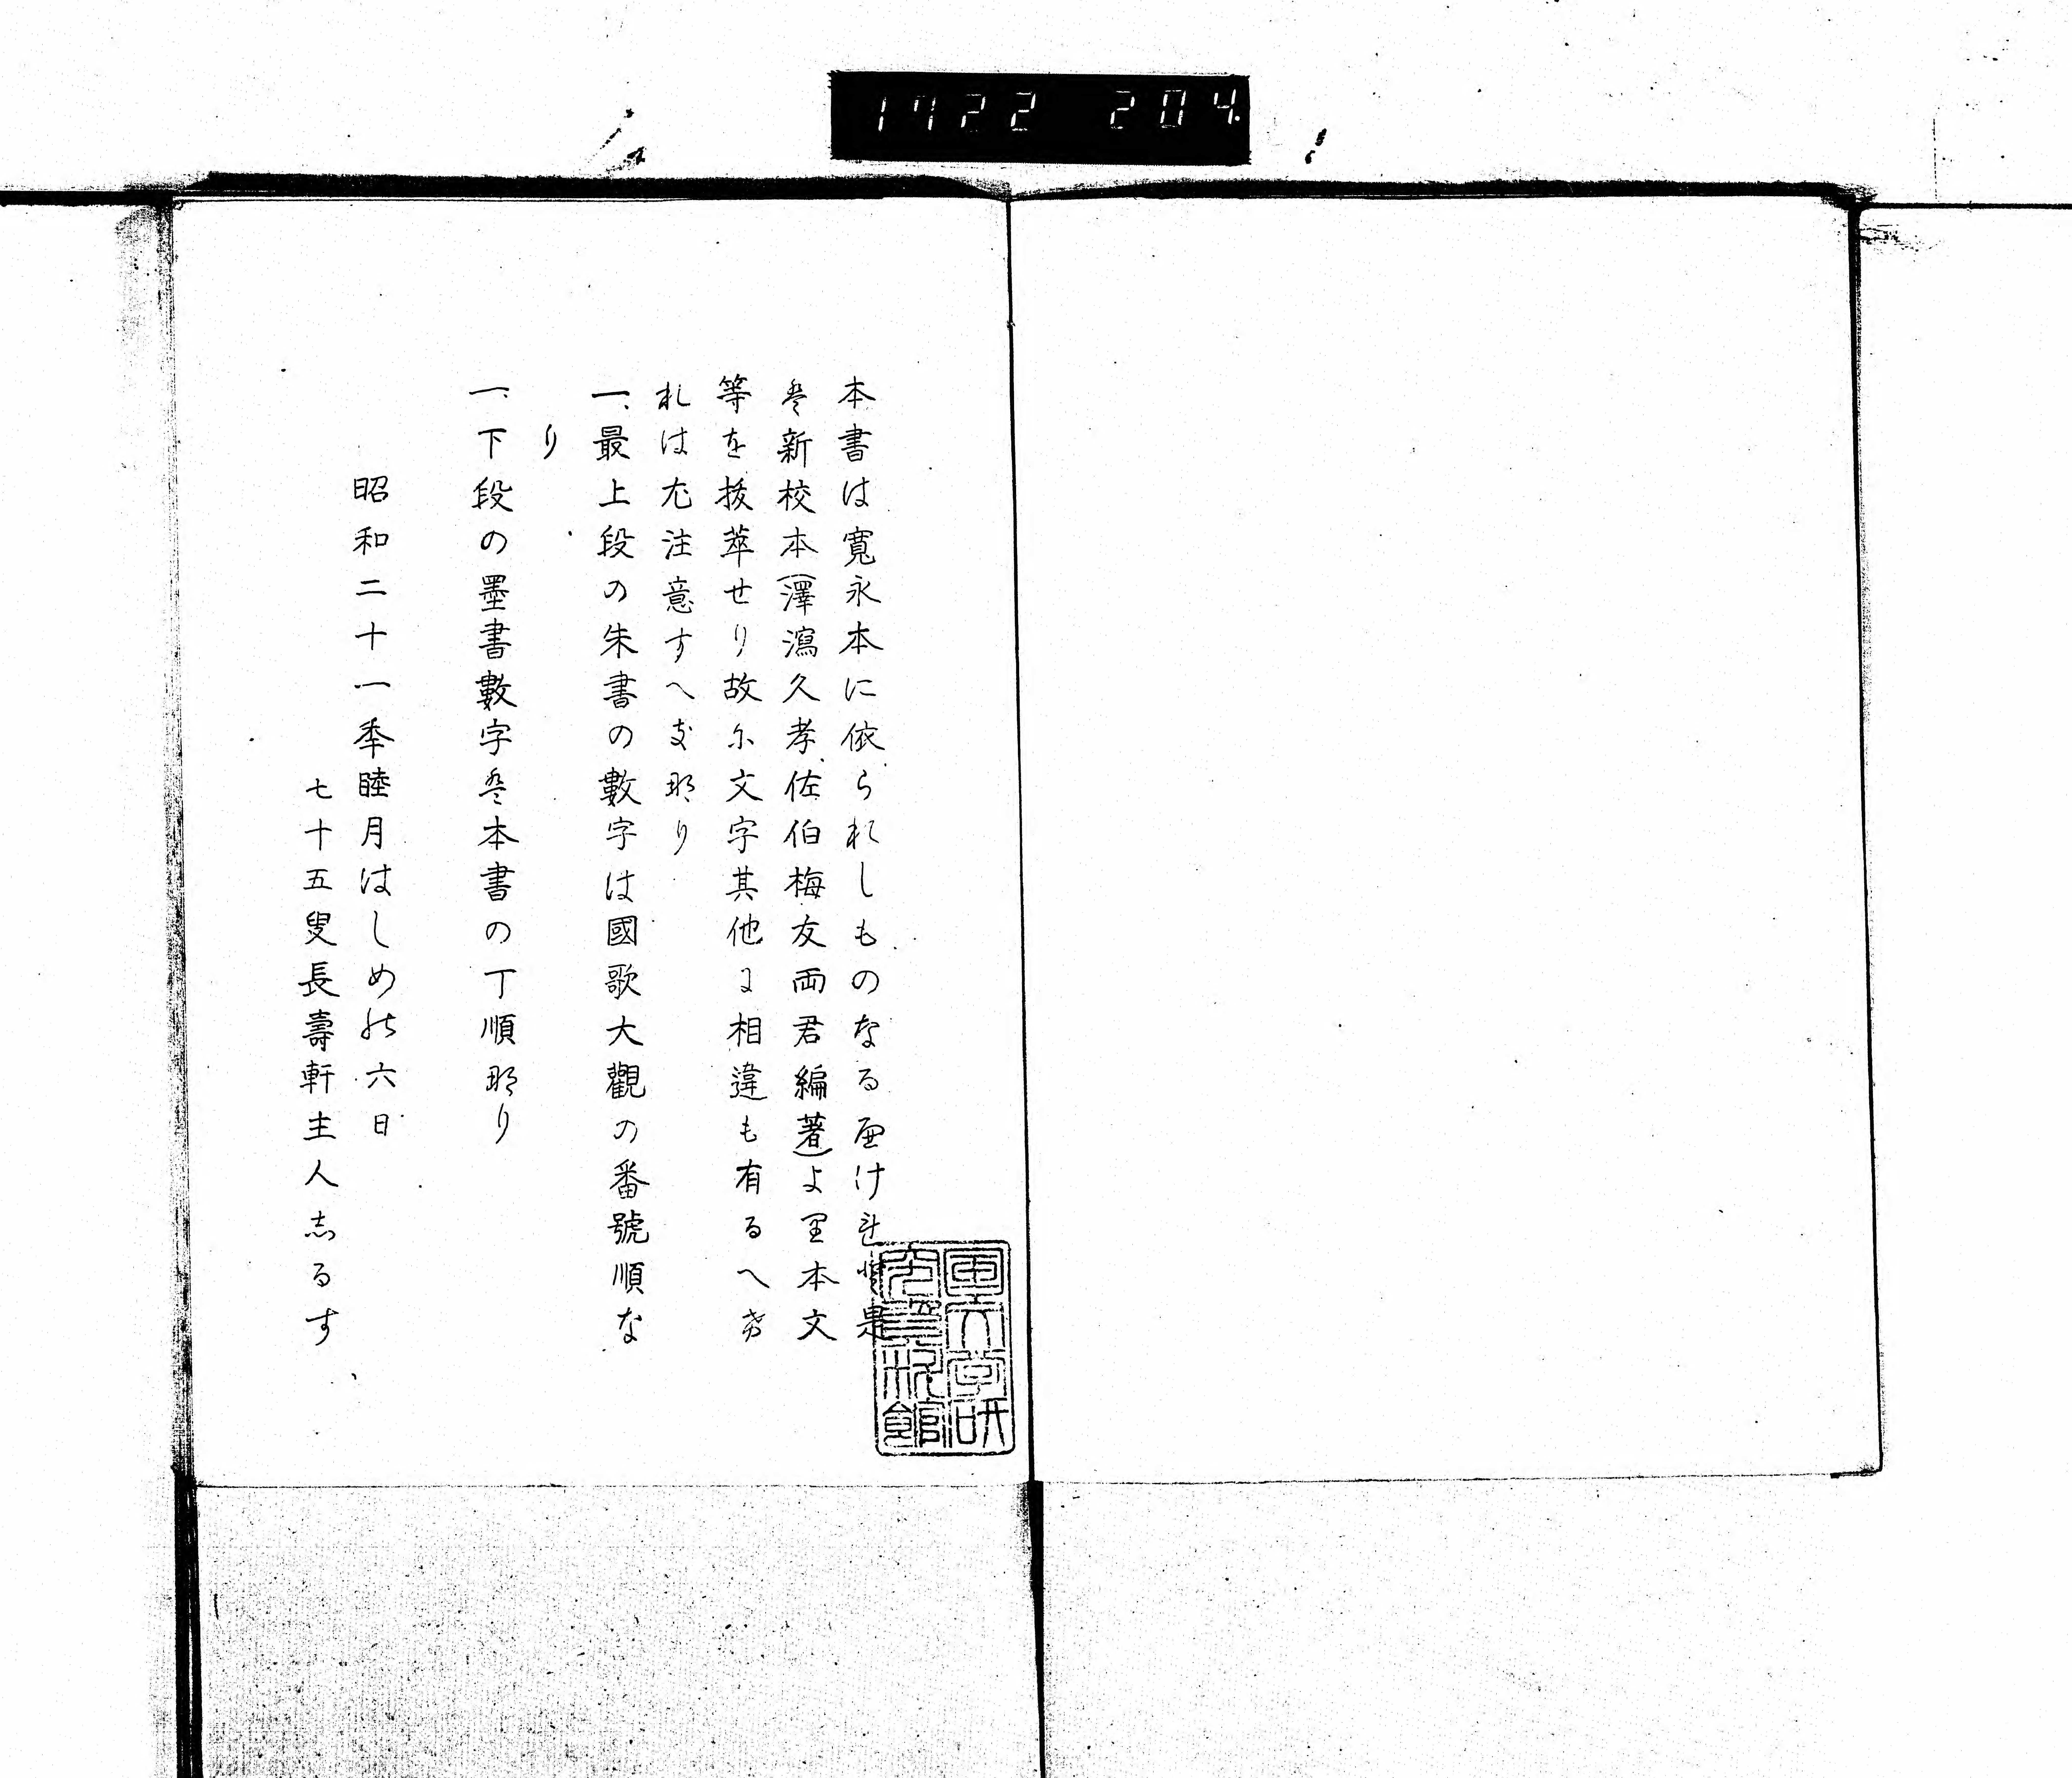 1722 204
本書は寛永本に依られしものなるけれ是
は新校本(澤瀉久孝、佐伯梅友両君編著)より本文
等を抜萃せり故に文字其他に相違も有るへき
れは尤注意すへきなり
一、最上段の朱書の數字は國歌大觀の番號順な
り
一、下段の墨書數字は本書の丁順なり
昭和二十一季睦月はしめの六日
七十五叟長壽軒主人志るす
国文学研
究資料館